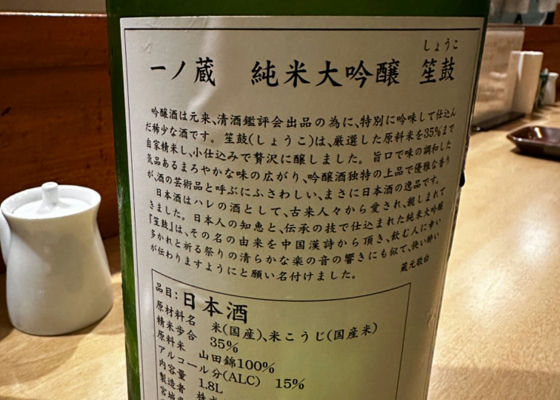 しょうこ
一ノ蔵 純米大吟醸 笙鼓
吟醸酒は元来、清酒鑑評会出品の為に、特別に吟味して仕込ん
だ稀少な酒です。笙鼓(しょうこ)は、厳選した原料米を35%まで
自家精米し、小仕込みで贅沢に醸しました。旨口で味の調和した
気品あるまろやかな味の広がり、吟醸酒独特の上品で優雅な香り
が、酒の芸術品と呼ぶにふさわしい、まさに日本酒の逸品です。
日本酒はハレの酒として、古来人々から愛され、親しまれて
きました。日本人の知恵と、伝承の技で仕込まれた純米大吟醸
『笙鼓』は、その名の由来を中国漢詩から頂き、飲む人に幸い
多かれと祈る祭りの清らかな楽の音の響きにも似て、快い酔い
が伝わりますようにと願い名付けました。
蔵元敬白
品目:日本酒
原材料名 米(国産)、米こうじ(国産米)
精米歩合 35%
原料米 山田錦100%
アルコール分(ALC) 15%
内容量 1.8L
製造者 株式
宮城県